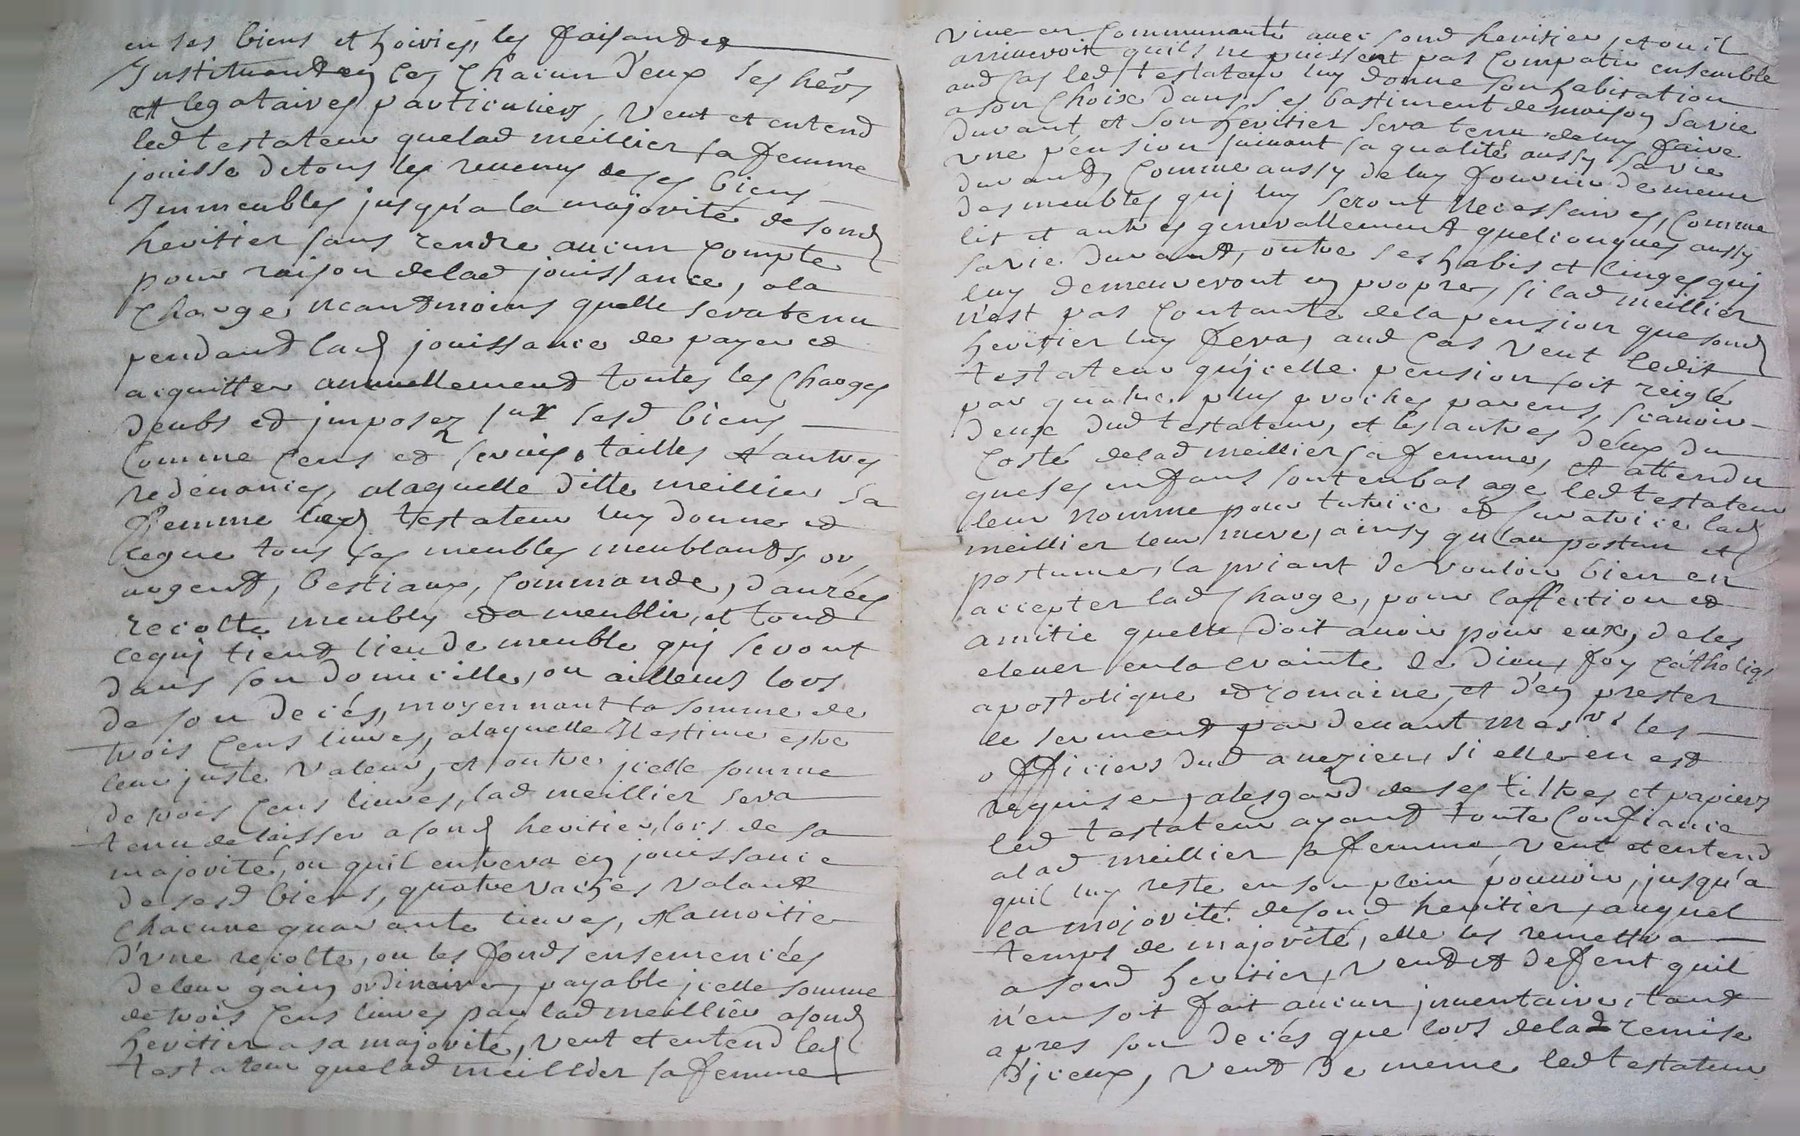 en ses biens et hoiries, les faisand et
Instituand en ces chacun d'eux ses hérs
et legataires particuliers, veut et entend
led testateur quelad meillier sa femme
jouisse detous les revenus de ses biens
Immeubles jusqu'a la majorité de sond
heritier sans rendre aucun compte
pour raison delad jouissance, ala
charge neandmoins quelle sera tenu
pendand lad jouissance de payer et
acquitter annuellement toutes les charges
deubs et imposez sur sesd biens
comme cens et servis, tailles et autres
redevances, alaquelle ditte meillier sa
femme led testateur luy donne et
legue tous ses meubles meublands, or,
argent, bestiaux, commande, danrées
recolte meubles et a meublir, et tout
cequi tiend lieu de meuble qui seront
dans son domicille, ou ailleurs lors
de son decés, moyennant la somme de
trois cens livres, alaquelle Il estime estre
leur juste valeur, et outre jcelle somme
de trois cens livres, lad meillier sera
tenu de laisser a sond heritier, lors de sa
majorité, ou quil entrera en jouissance
de sesd biens, quatre vaches valant
chacune quarante livres, et la moitie
d'une recolte, ou les fonds ensemencées
de leur gain ordinaire, payable jcelle somme
de trois cens livres par lad meillier a sond
heritier a sa majorité, veut et entend led
testateur quelad meillier sa femme
vive en communauté avec sond heritier, et ou il
arriveroit quils ne puissent pas compatir ensemble
aud cas led testateur luy donne son habitation
a son choix dans ses bastiment de maison sa vie
durant, et son heritier sera tenu de luy faire
une pension suivant sa qualité aussy sa vie
durand, comme aussy de luy fournir de meme
des meubles qui luy seront necessaires, comme
lit et autres generallement quelconques aussy
sa vie durand, outre ses habis et linges qui
luy demeureront en propre, si lad meillier
n'est pas contante de la pension que sond
heritier luy fera, aud cas veut ledit
testateur qu'jcelle pension soit reiglé
par quatre plus proches parens, scavoir
deux dud testateur, et les autres deux du
costé delad meillier sa femme, et attendu
que ses enfans sont en bas age led testateur
leur nomme pour tutrice et curatrice lad
meillier leur mere, ainsy qu'au postum et
postume, la priant de vouloir bien en
accepter lad charge, pour l'affection et
amitie quelle doit avoir pour eux, de les
elever en la crainte de Dieu, foy catholiqe
apostolique et romaine, et d'en prester
le serment par devant mesrs les
officiers dud avezieu, si elle en est
requise, alesgard de ses tiltres et papiers
led testateur ayand toute confiance
alad meillier sa femme, veut et entend
quil luy reste en son plain pouvoir, jusqu'a
la majorité de sond heritier, auquel
temps de majorité, elle les remettra
a sond heritier, veud et defent quil
n'en soit fait aucun jnventaire, tand
apres son decés que lors delad remise
d'jceux, veud de meme led testateur